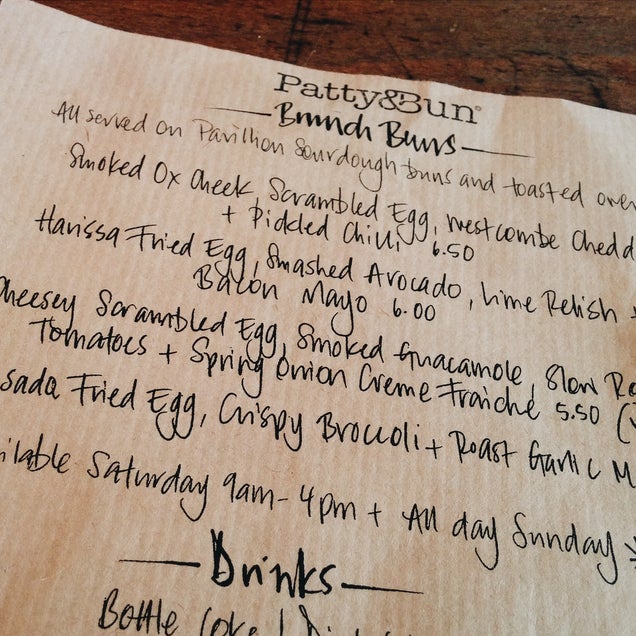 Patty&Bun
Brunch Buns
All served on Pavillion Sourdough buns and toasted over
Smoked Ox Cheek, Scrambled Egg, Westcombe Chedd
+ Pickled Chilli 6.50
Harissa Fried Egg, Smashed Avocado, Lime Relish +
Bacon Mayo 6.00
heesey Scrambled Egg, Smoked Guacamole, Slow Ro
Tomatoes + Spring Onion Creme Fraiche 5.50 (
sada Fried Egg, Crispy Broccoli + Roast Garlic M
ilable Saturday 9am - 4pm + All day Sunday
Drinks
Bottle Coke / Di